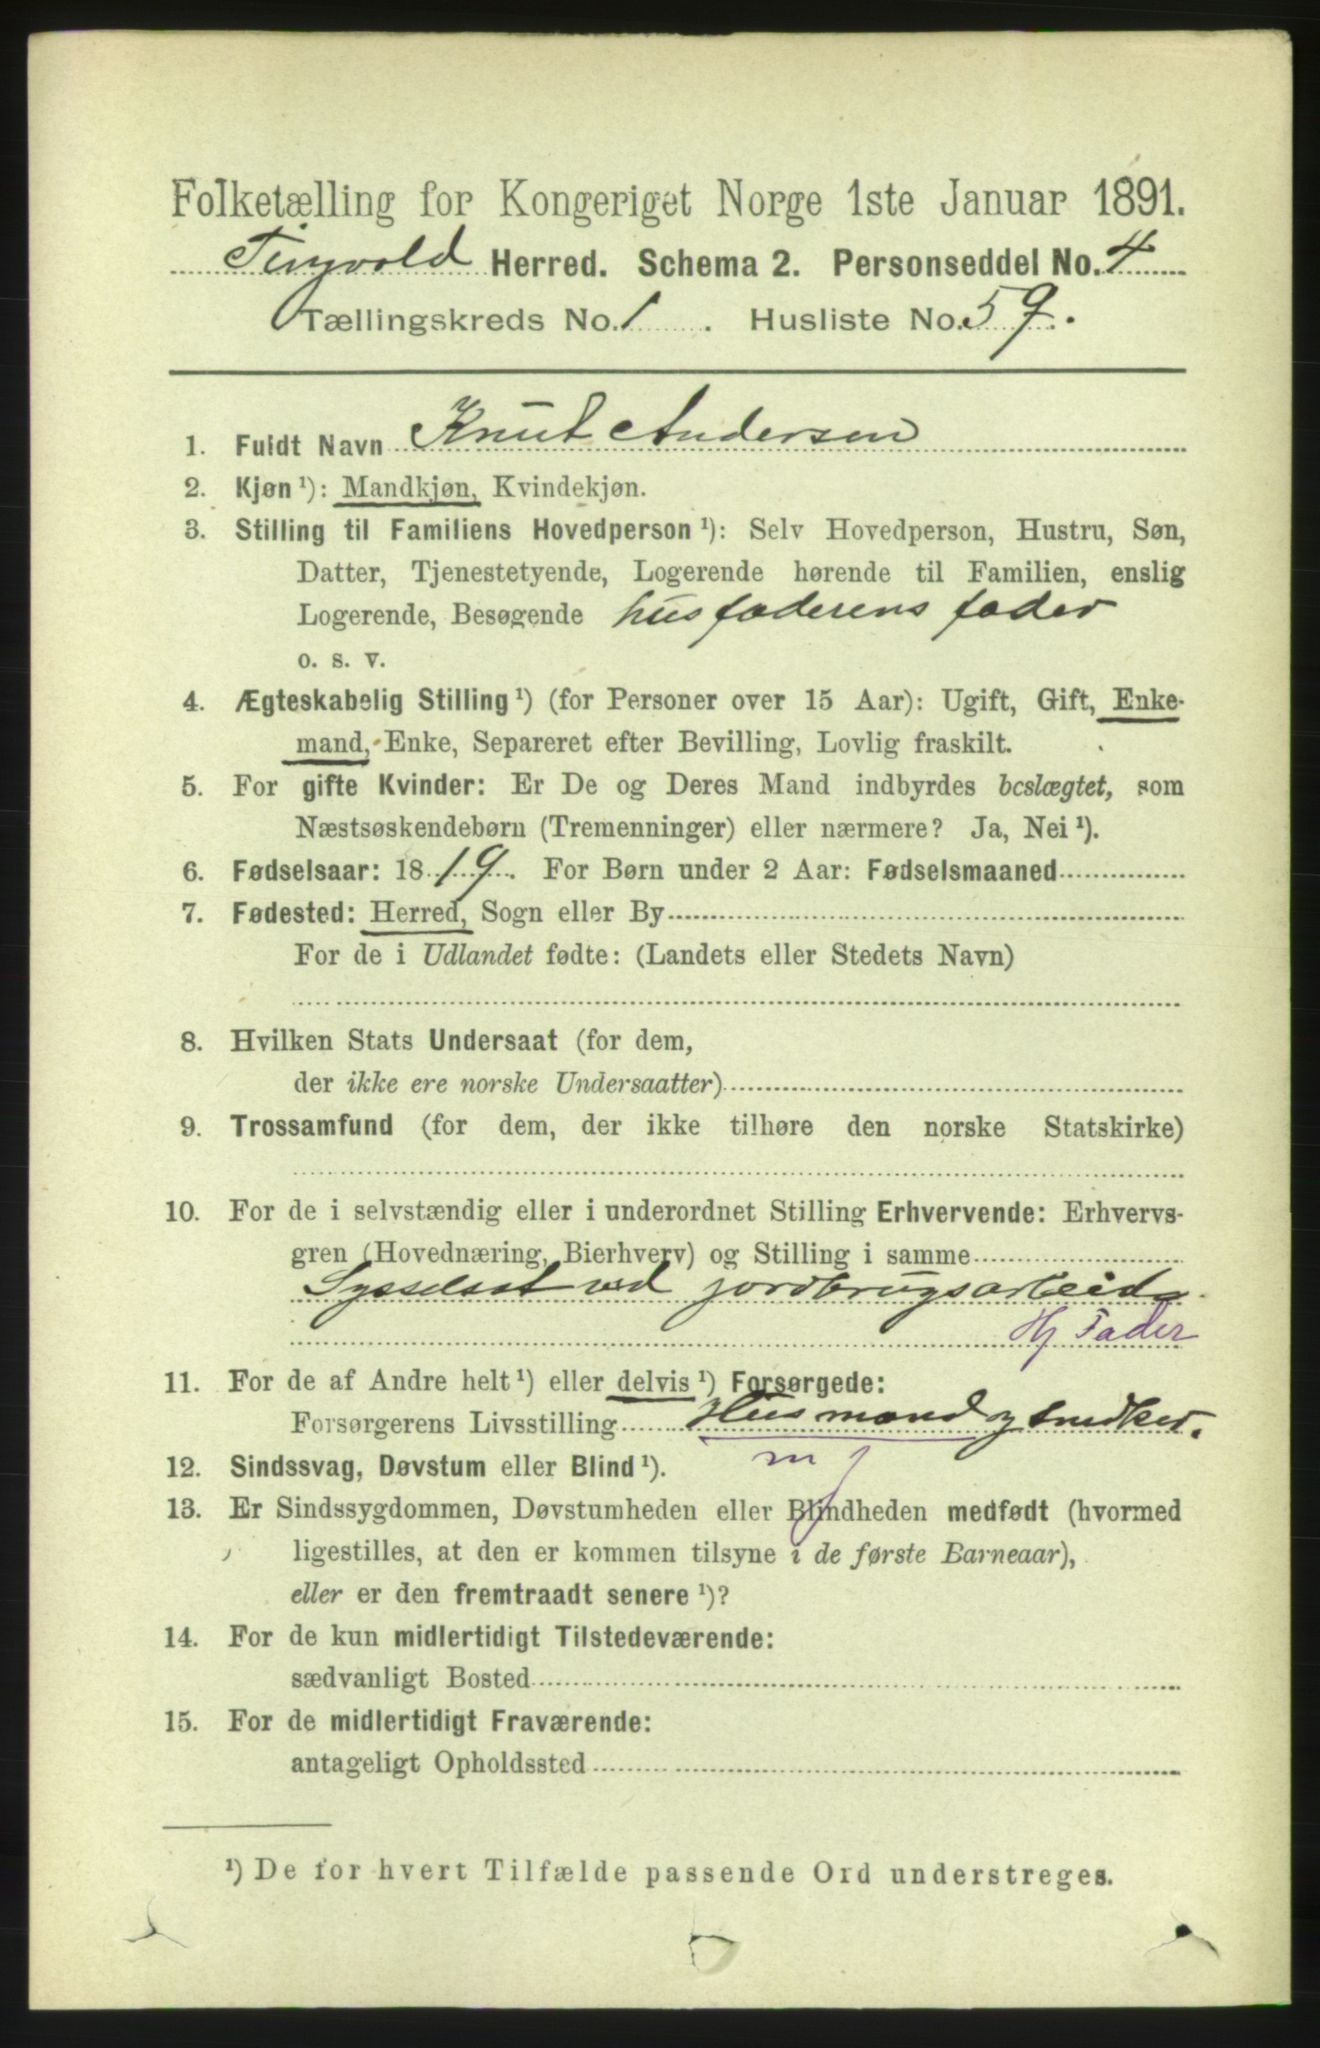 Folketælling for Kongeriget Norge 1ste Januar 1891.
Tingvold Herred. Schema 2. Personseddel No. 4
Tællingskreds No. 1. Husliste No. 59.
1. Fuldt Navn Knut Andersen
2. Kjøn ¹): Mandkjøn, Kvindekjøn.
3. Stilling til Familiens Hovedperson ¹): Selv Hovedperson, Hustru, Søn,
Datter, Tjenestetyende, Logerende hørende til Familien, enslig
Logerende, Besøgende husfaderens fader
o. s. v.
4. Ægteskabelig Stilling ¹) (for Personer over 15 Aar): Ugift, Gift, Enke-
mand, Enke, Separeret efter Bevilling, Lovlig fraskilt.
5. For gifte Kvinder: Er De og Deres Mand indbyrdes beslægtet, som
Næstsøskendebørn (Tremenninger) eller nærmere? Ja, Nei ¹).
6. Fødselsaar: 1819. For Børn under 2 Aar: Fødselsmaaned
7. Fødested: Herred, Sogn eller By
For de i Udlandet fødte: (Landets eller Stedets Navn)
8. Hvilken Stats Undersaat (for dem,
der ikke ere norske Undersaatter)
9. Trossamfund (for dem, der ikke tilhøre den norske Statskirke)
10. For de i selvstændig eller i underordnet Stilling Erhvervende: Erhvervs-
gren (Hovednæring, Bierhverv) og Stilling i samme
Sysselsat ved jordbrugsarbeide
Hf Fader
11. For de af Andre helt ¹) eller delvis ¹) Forsørgede:
Forsørgerens Livsstilling Husmand og snedker.
m f
12. Sindssvag, Døvstum eller Blind ¹).
13. Er Sindssygdommen, Døvstumheden eller Blindheden medfødt (hvormed
ligestilles, at den er kommen tilsyne i de første Barneaar),
eller er den fremtraadt senere ¹)?
14. For de kun midlertidigt Tilstedeværende:
sædvanligt Bosted
15. For de midlertidigt Fraværende:
antageligt Opholdssted
¹) De for hvert Tilfælde passende Ord understreges.